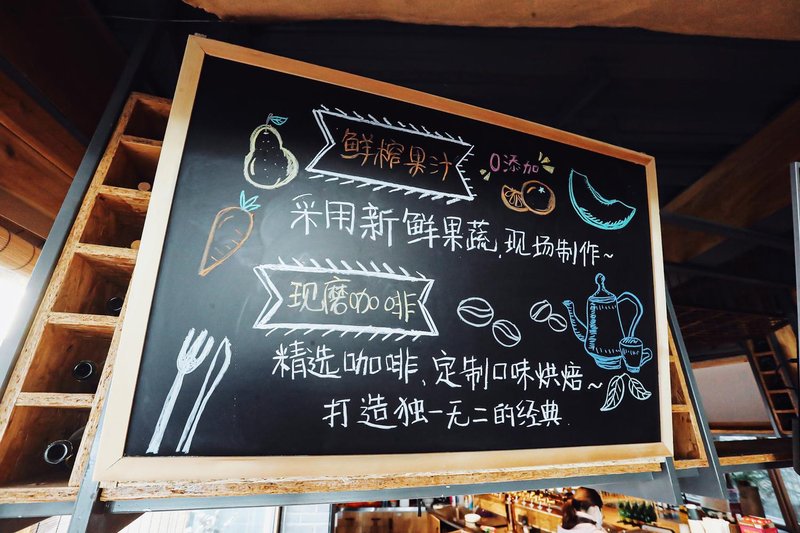 鲜榨果汁
0添加
采用新鲜果蔬,现场制作~
现磨咖啡
精选咖啡、定制口味烘焙~
打造独一无二的经典.